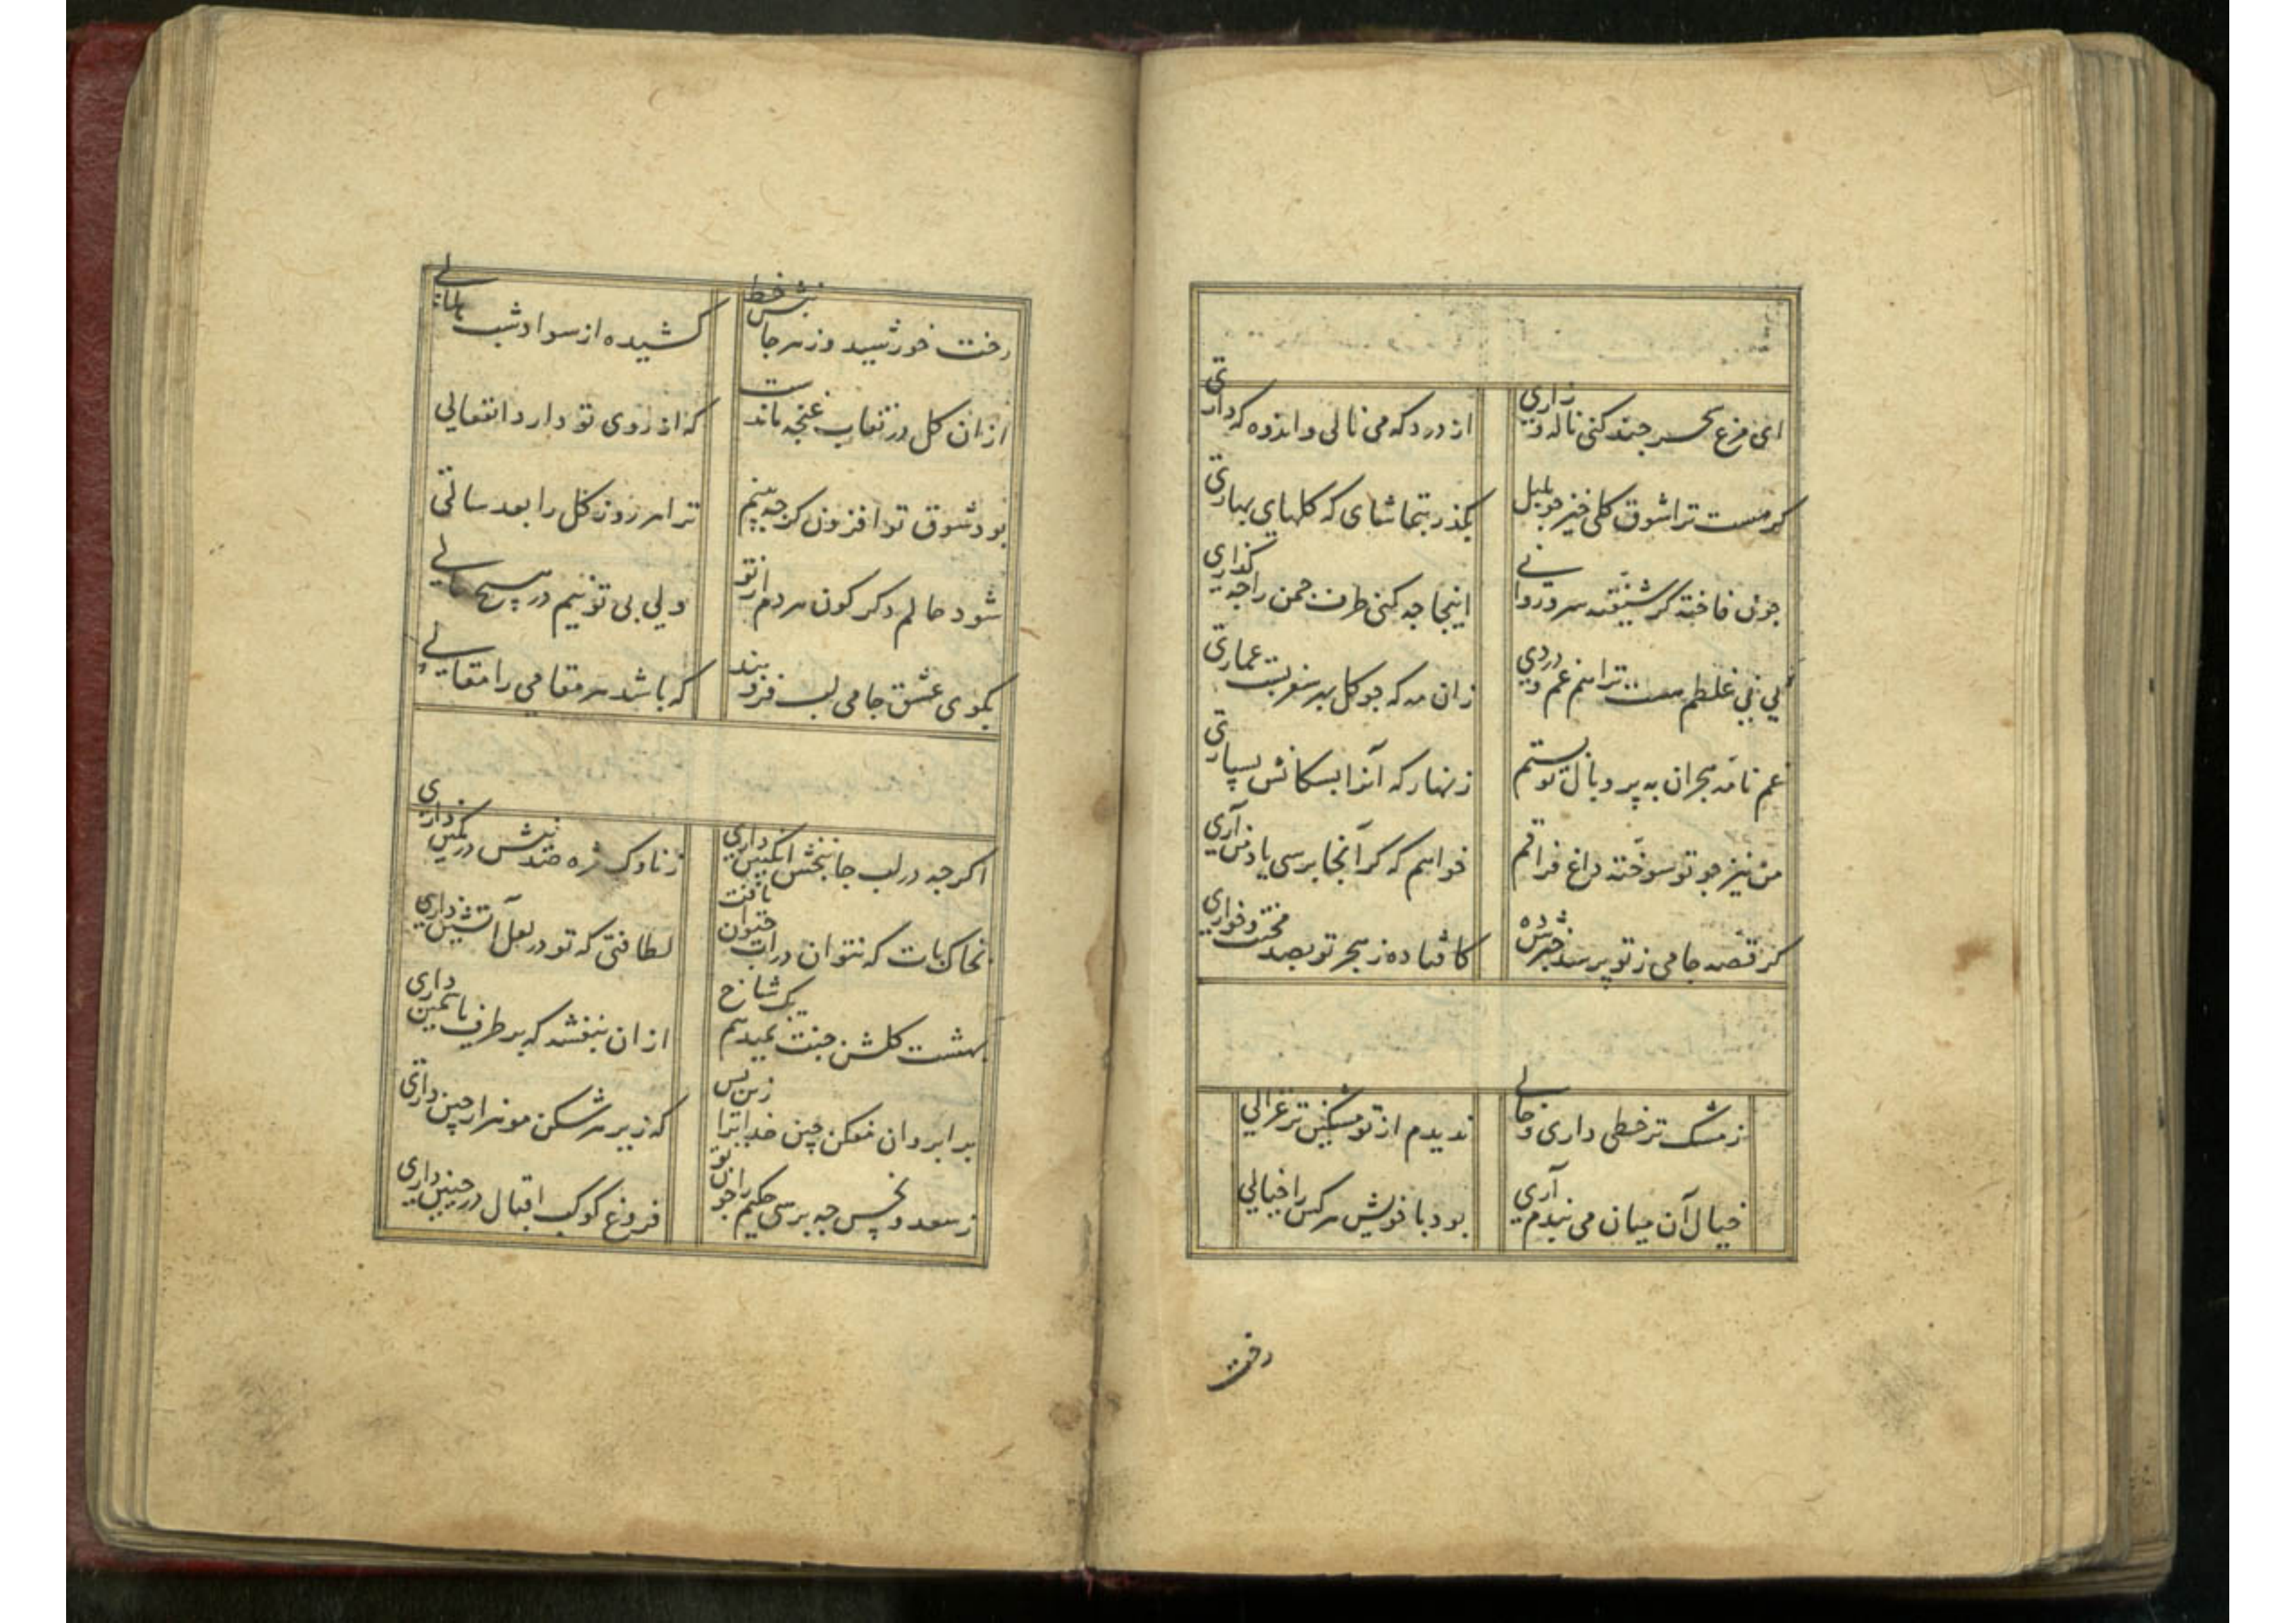 ای مرغ سحر چند کنی ناله و زاری از درد که می نالی و اندوه که داری
گر هست ترا شوق گلی خیز چو بلبل بگذر بتماشای که گلهای بهاری
چون فاخته گر شیفته سرو روانی اینجا چه کنی طرف چمن را چه گذاری
نی نی غلطم هست ترا هم غم و دردی زان مه که چو گل بر سفر بست عماری
غم نامه هجران به پر و بال تو بستم زنهار که آنرا بسکانش بسپاری
من نیز چو تو سوخته داغ فراقم خواهم که گر آنجا برسی یاد من آری
کز قصه جامی ز تو پرسند خبر شده کافتاده ز هجر تو بصد محنت و خواری
ز مشک تر خطی داری و خالی ندیدم از تو مشکین تر غزالی
خیال آن میان می بندم آری بود با خویش هر کس را خیالی
رخت
رخت خورشید و زهر جانبش خط کشیده از سواد شب هلالی
از آن گل در نقاب غنچه ماندست که از روی تو دارد انفعالی
بود شوق تو افزون گرچه بینم ترا هر روز گل را بعد سالی
شود حالم دگرگون هر دم از تو ولی بی تو نیم در هیچ حالی
بگوی عشق جامی لب فرو بند که باشد هر مقامی را مقالی
اگرچه در لب جانبخش انگبین داری ز ناوک مژه صد نیش در کمین داری
بخاک پات که نتوان در آب یافت لطافتی که تو در لعل آتشین داری
بهشت گلشن جنت نمیدهم یک شاخ از آن بنفشه که بر طرف یاسمین داری
بر ابروان مفکن چین خدایرا زین پس که زیر هر شکن مو هزار چین داری
ز سعد و نحس چه پرسی حکیم را چون تو فروغ کوکب اقبال در جبین داری